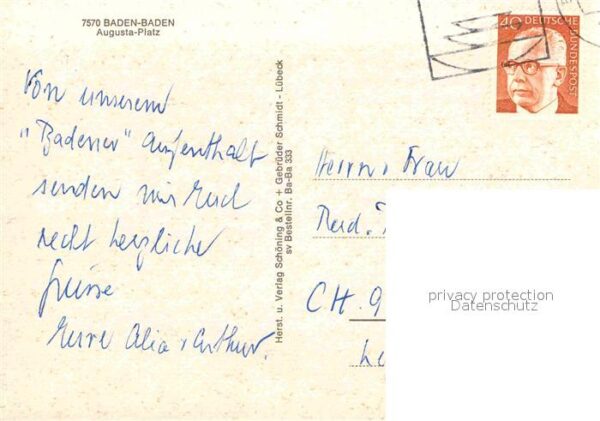 7570 BADEN-BADEN
Augusta-Platz
Von unserem
"Badener" Aufenthalt
senden wir Euch
recht herzliche
Grüsse
Eure Alia + Arthur.
Herst. u. Verlag Schöning & Co + Gebrüder Schmidt - Lübeck
sv Bestellnr. Ba-Ba 333
40 DEUTSCHE
BUNDESPOST
Herrn + Frau
CH. 9
privacy protection
Datenschutz